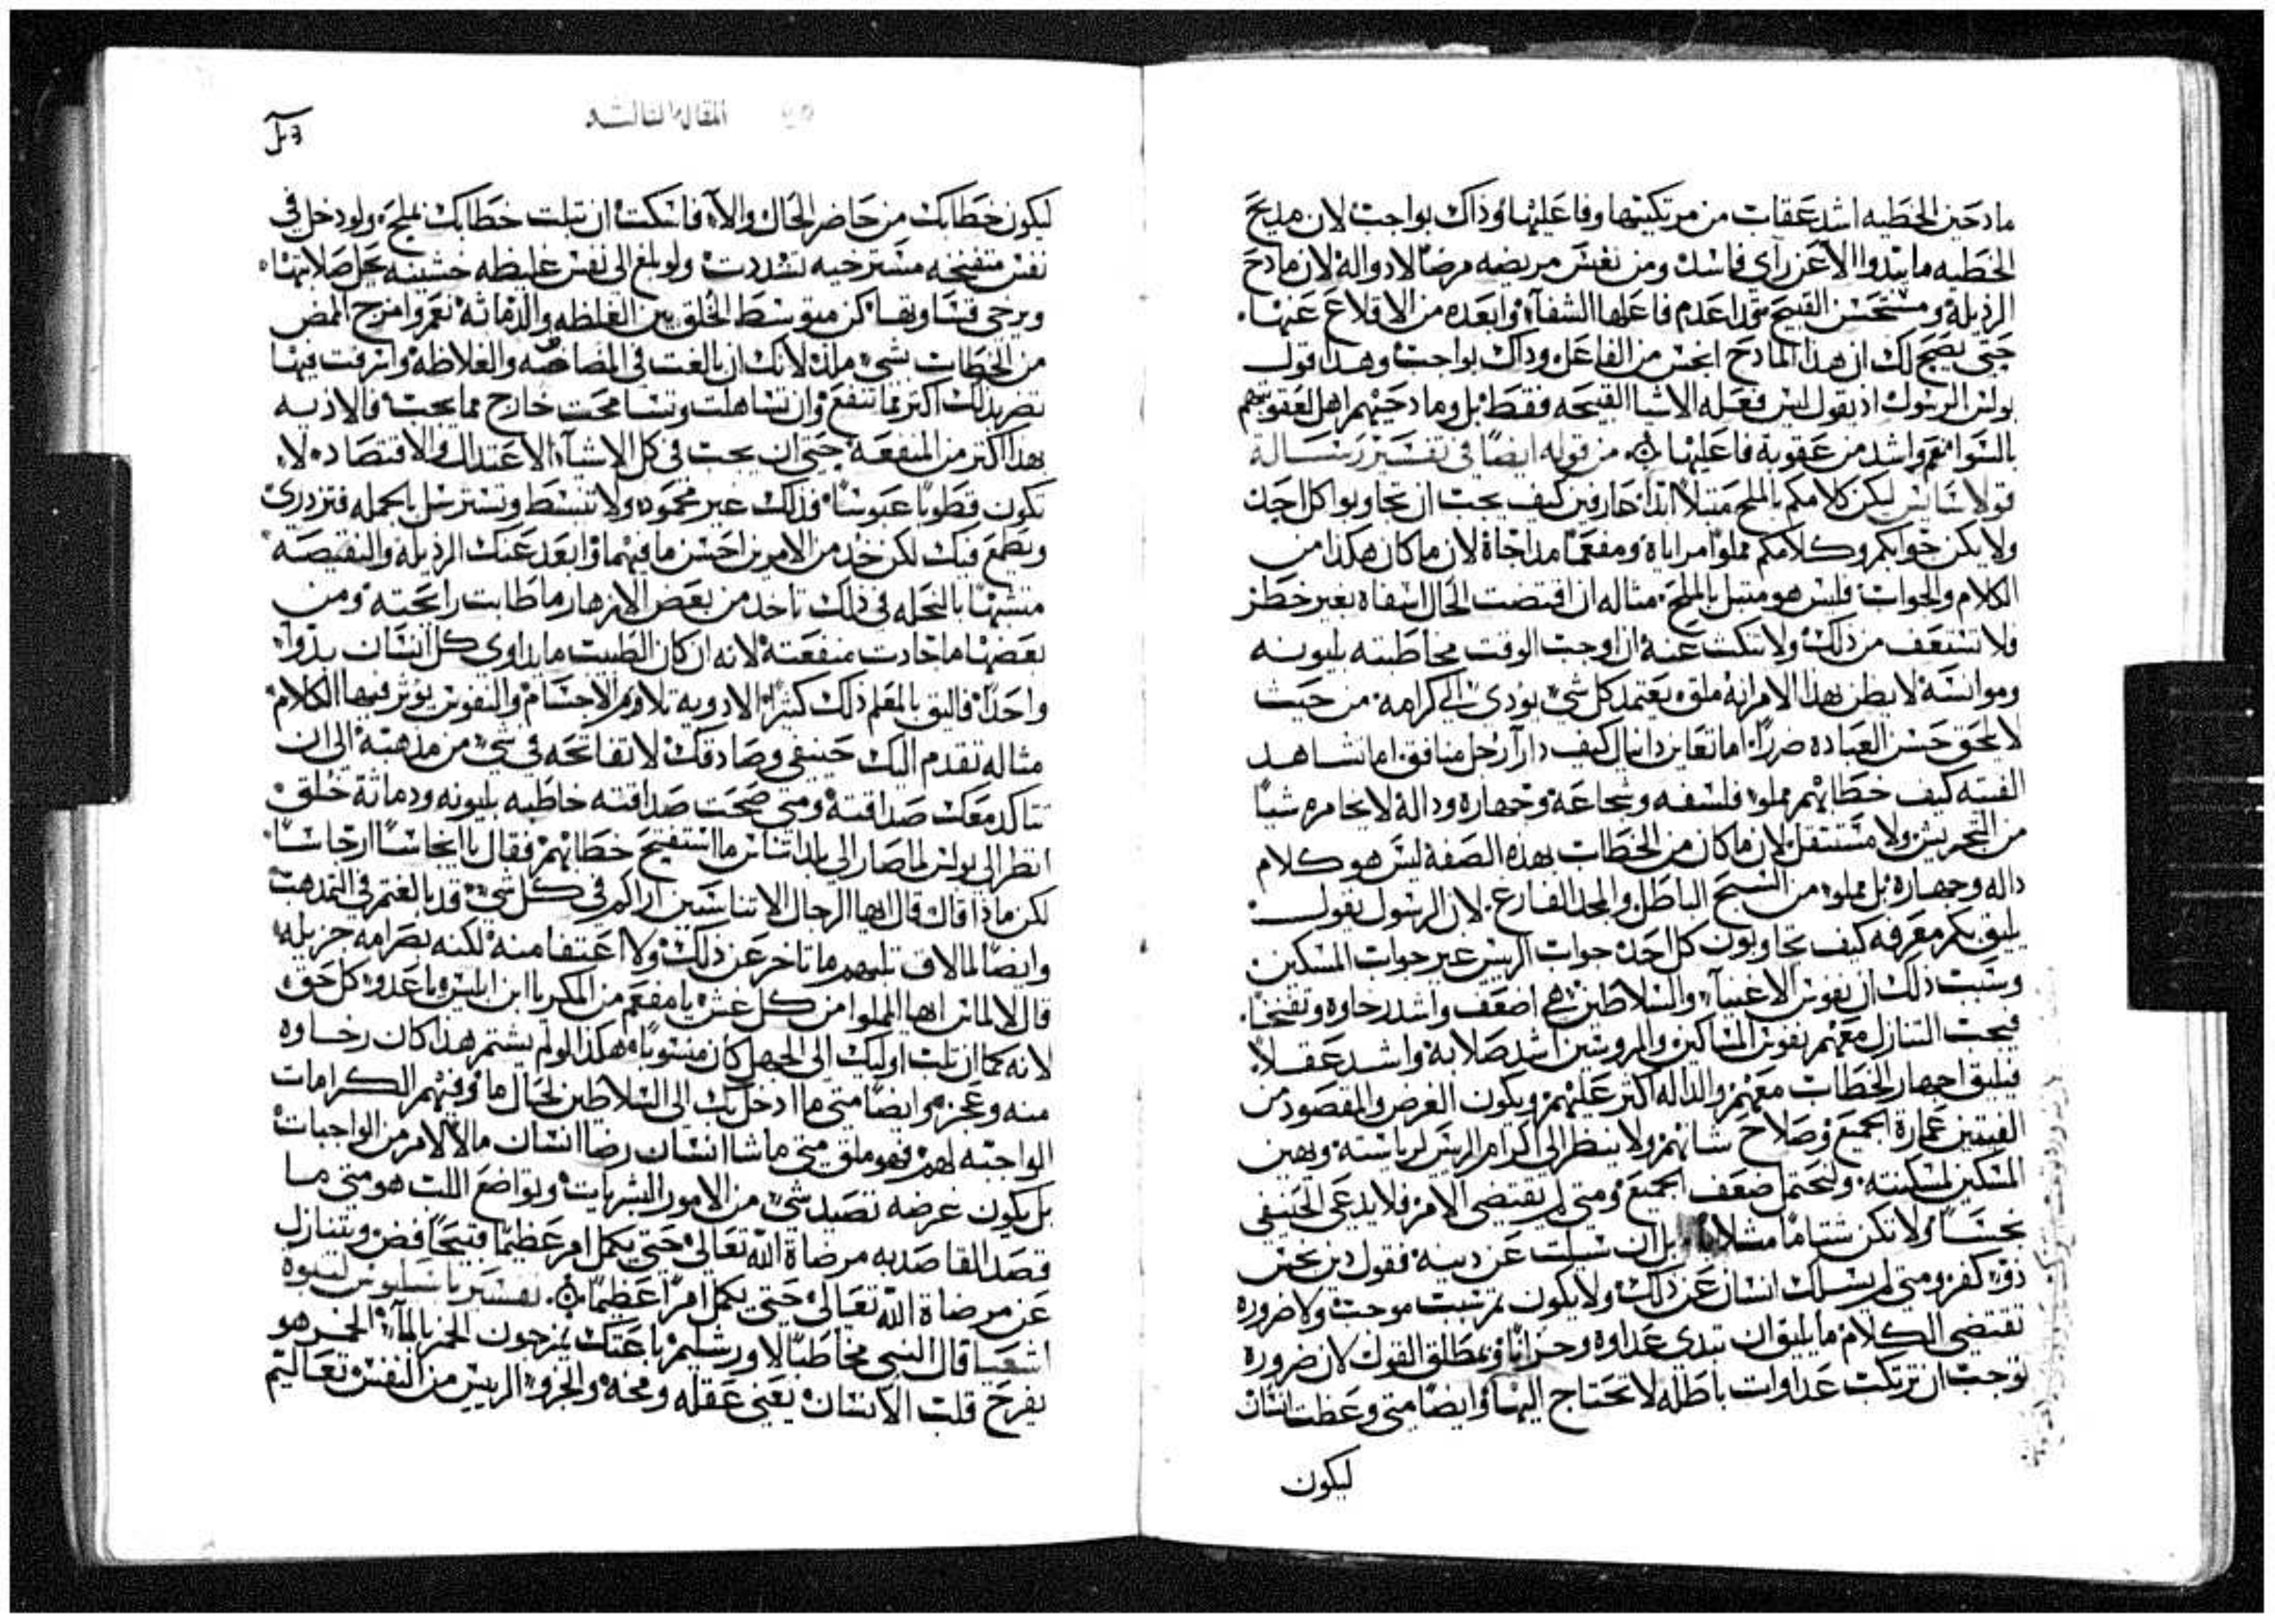 مادحين الخطيه اشد عقاب من مرتكبيها وفاعليها وذاك بواجب لان مديح
الخطيه ما يبدوا الا عن راي فاسد ومن نفس مريضه مرضا لا دوا له لان مادح
الرذيله ومستحسن القبيح قد اعدم فاعلها الشفاء وابعده من الاقلاع عنها.
حتى يصح لك ان هذا المادح انجس من الفاعل وذاك بواجب وهذا قول
بولس الرسول اذ يقول ليس فعله الاشيا القبيحه فقط بل ومادحيهم اهل لعقوبتهم
بالسوا نعم واشد من عقوبة فاعليها من قوله ايضا في تفسير رسالة
قولاسايس ليكن كلامكم بالملح متبلا ابدا عارفين كيف يجب ان تجاوبوا كل احد
ولا يكن جوابكم وكلامكم مملوا مراياه ومفعما مداجاة لان ما كان هكذا من
الكلام والجواب فليس هو متبل بالملح مثاله ان اقتضت الحال اشفاه بغير خطر
فلا تستعف من ذلك ولا تنكث عنه ان اوجب الوقت مخاطبته بليونه
وموانسة لا يظن بهذا الامر انه ملق يعتمد كل شي يودي الى كرامه من حيث
لا يلحق حسن العباده ضررا اما تعاين دانيال كيف دارا رجل منافق اما تشاهد
الفتيه كيف خطابهم مملو فلسفه وشجاعة وجهارة ودالة لا يخامره شيا
من التجريش ولا مستثقل لان ما كان من الخطاب بهذه الصفه ليس هو كلام
داله وجهارة بل مملو من السبح الباطل والمجد الفارغ لان الرسول يقول
يليق بكم معرفه كيف تجاوبون كل احد جواب الريس غير جواب المسكين
وسبب ذلك ان نفوس الاغنياء والسلاطين هي اضعف واشد رخاوه وتفتحا.
فيجب التنازل معهم نفوس المساكين والمروسين اشد صلابة واشد عقلا
فيليق اجهار الخطاب معهم والداله اكثر عليهم ويكون الغرض والمقصود من
الفيتين عمارة الجميع وصلاح شانهم ولا ينظر الى اكرام الريس لرياسته ويهين
المسكين لمسكنته وليحتمل ضعف الجميع ومتى لم يقتضي الامر فلا يدعى الحنيفي
نجسا ولا تكن شتاما بل ان سيلت عن دينه فقول دين نجس
ذو كفر ومتى لم يسلك انسان عن ذلك ولا يكون ثم سبب موجب ولا ضروره
تقتضي الكلام ما يليق ان تبدي عداوه وحرابا وبمطلق القول لان ضروره
توجب ان ترتكب عداوات باطله لا تحتاج اليها وايضا متى وعظت انسان
ليكون
المقاله الثالثه
ليكون خطابك من حاضر الحال والا فاسكت ان تبلت خطابك بملح ولو دخل في
نفس متفتحه مسترخيه تشددت ولو بلغ الى نفس غليظه خشنه يحل صلابتها
ويرخي قساوتها كن متوسط الخلق بين الغلظه والدماثه نعم وامزج الممض
من الخطاب بشي ملذ لانك ان بالغت في المضاضه والغلاظة واسرفت فيها
تضر بذلك اكثر مما تنفع وان تساهلت وتسامحت خارج مما يجب فالاذيه
بهذا اكثر من المنفعة حتى ان يجب في كل الاشياء الاعتدال والاقتصاد لا
تكون قطوبا عبوسا فذلك غير محمود ولا تنبسط وتسترسل بالجمله فتزدري
ويطمع فيك لكن خذ من الامرين احسن ما فيهما وابعد عنك الرذيلة والنقيصه
متشبها بالنحله في ذلك تاخذ من بعض الازهار ما طابت رايحته ومن
بعضها ما جادت منفعته لانه ان كان الطبيب ما يداوي كل انسان بدوا
واحدا فاليق بالمعلم ذلك كثيرا الادويه تلاوم الاجسام والنفوس يوثر فيها الكلام
مثاله تقدم اليك حنيفي وصادقك لا تفاتحه في شي من مذهبه الى ان
تتاكد معك صداقته ومتى صحت صداقته خاطبه بليونه ودماثة خلق
انظر الى بولس لما صار الى بلد اثناس ما استفتح خطابهم فقال يا انجاسا ارجاسا
لكن ماذا قال قال ايها الرجال الاثناسيين اراكم في كل شي قد بالغتم في التمذهب
وايضا لما لاق تلبهم ما تاخر عن ذلك ولا اعتفا منه لكنه بصرامه جزيله
قال لالماس ايها المملوا من كل غش يا مفعم من المكر يا ابن ابليس ويا عدو كل حق
لانه كما ان ثلب اوليك الى الجهل كان منسوبا هكذا لو لم يشتم هذا كان رخاوه
منه وعجز وايضا متى ما ادخل بك الى السلاطين لحال ما وفيهم الكرامات
الواجبه لهم فهو ملق متى ما شا انسان رضا انسان ما لالامر من الواجبات
بل يكون غرضه تصيد شي من الامور البشريات وتواضع اللب هو متى ما
قصد القاصد به مرضاة الله تعالى حتى يكمل امر عظيما قبيحا فض ويتنازل
عن مرضاة الله تعالى حتى يكمل امرا عظيما تفسير باسليوس لنبوة
اشعيا قال النبي مخاطبا لاورشليم باعتك يمزجون الخمر بالماء الخمر هو
يفرح قلب الانسان يعني عقله ومخه والجزو الريس من النفس تعاليم